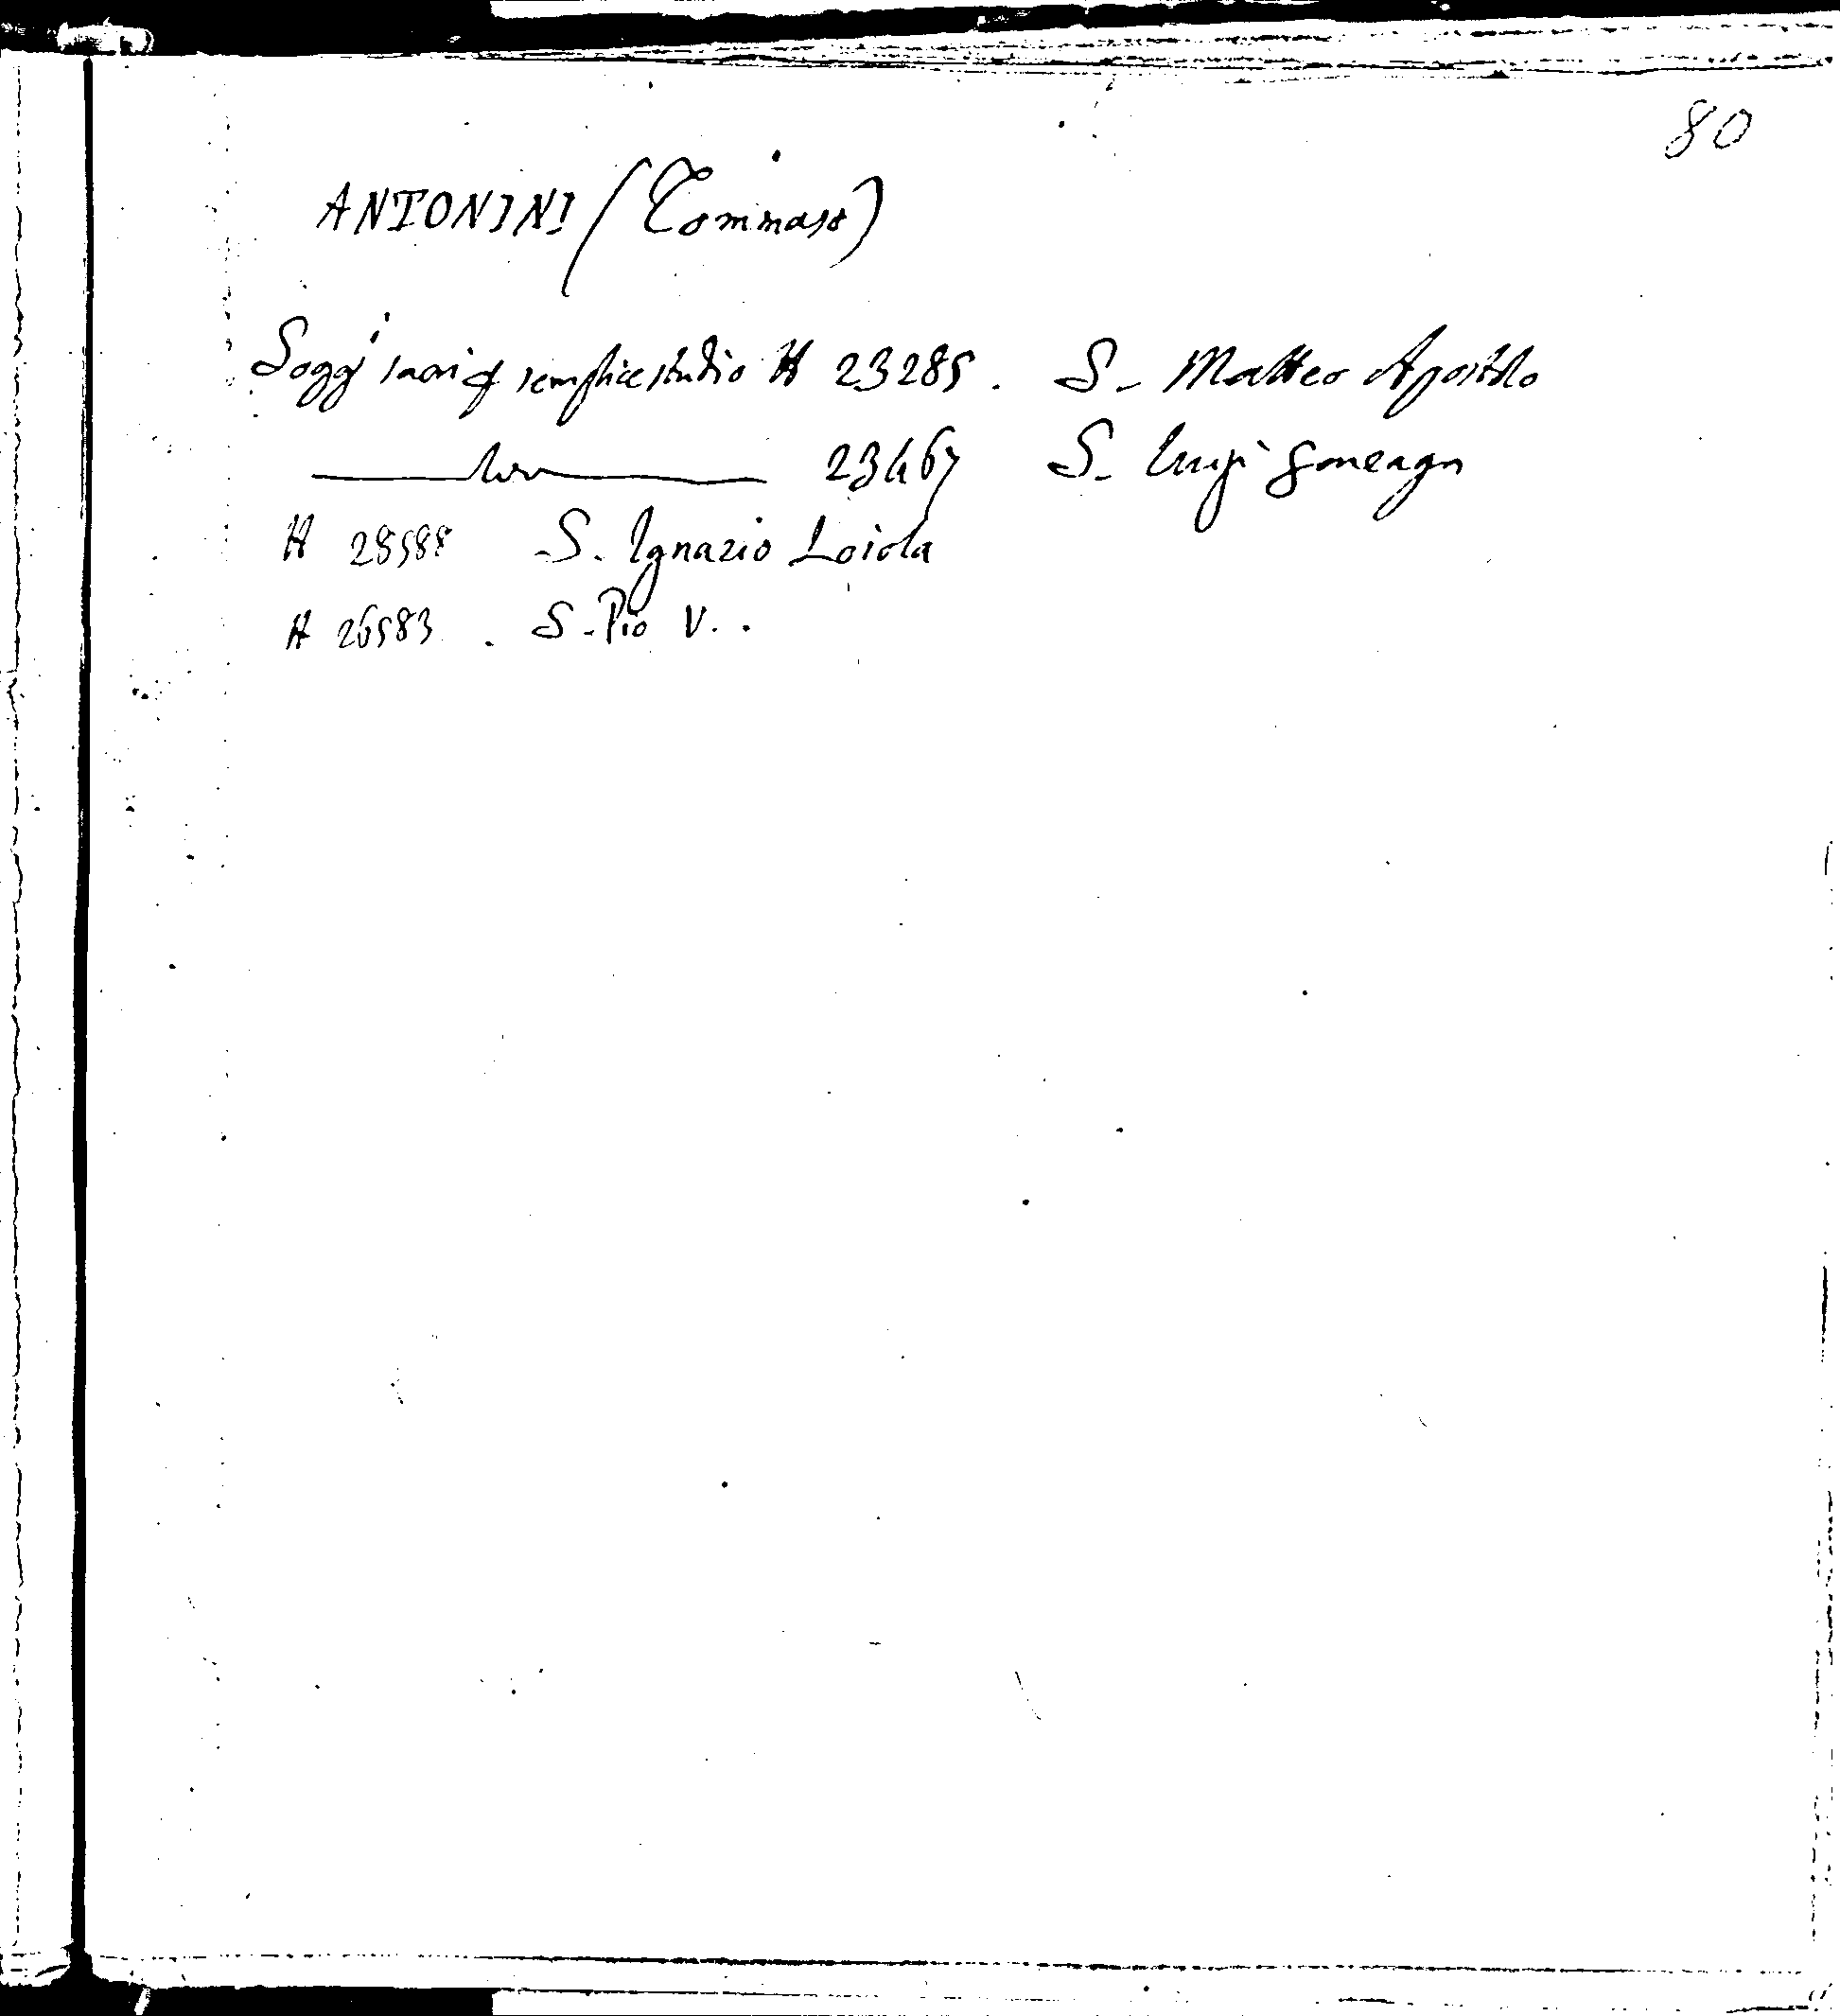 80
ANTONINI (Tommaso)
Sogg' sacri semplice studio H 23285. S. Matteo Apostolo
23467 S. Luigi Gonzaga
H 28588 S. Ignazio Loiola
H 26583. S. Pio V..